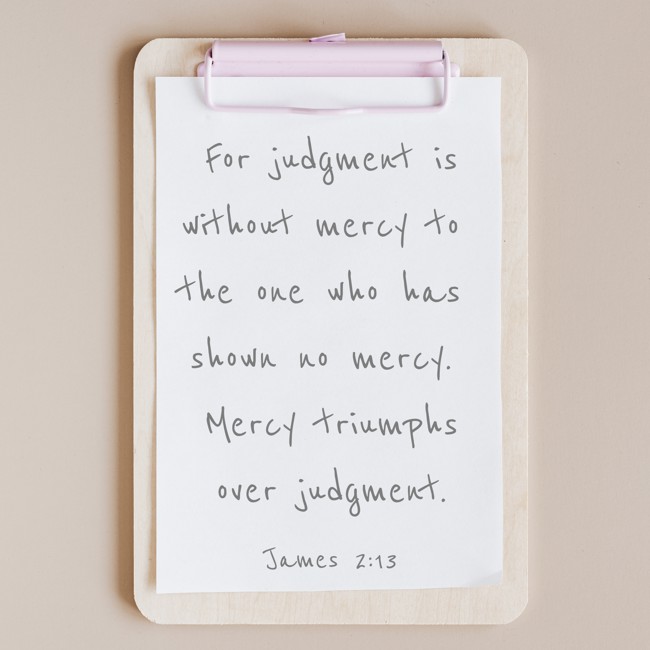 For judgment is
without mercy to
the one who has
shown no mercy.
Mercy triumphs
over judgment.
James 2:13